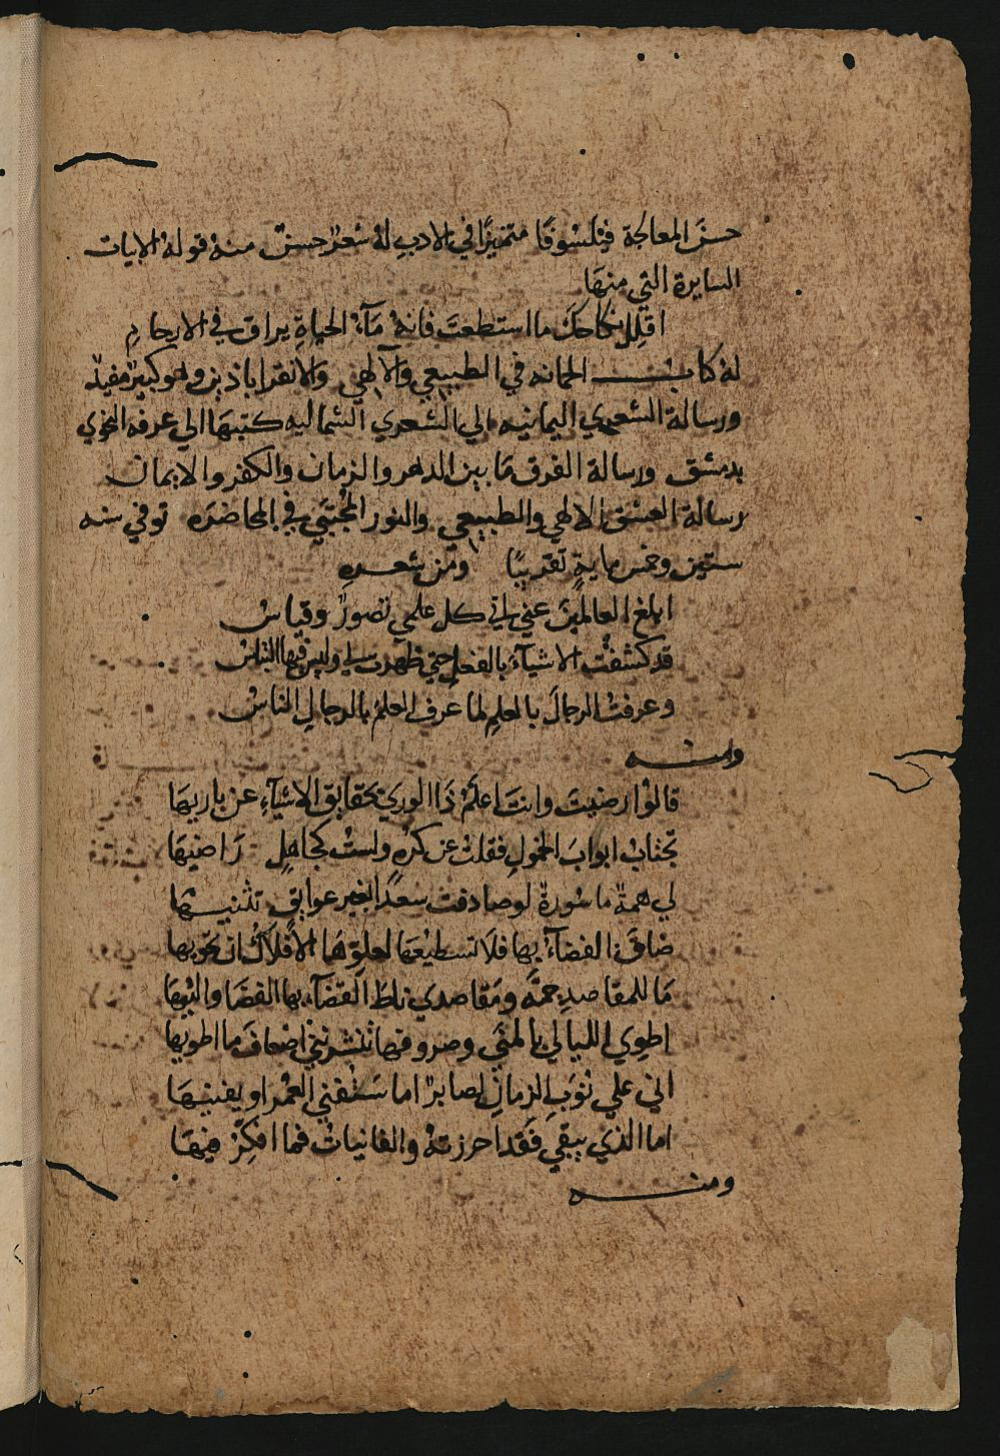 حسن المعالجة فيلسوفًا متميزًا في الادب له شعر حسن منه قوله الابيات
السايرة التي منها
اقلل نكاحك ما استطعت فانه مآء الحياة يراق في الارحام
له كتاب الجمانه في الطبيعي والآلهي والاقراباذين وهو كبير مفيد
ورسالة الشعري اليمانيه الي الشعري الشماليه كتبها الي عرفه النحوي
بدمشق ورسالة الفرق مابين الدهر والزمان والكفر والايمان
رسالة العشق الالهي والطبيعي والنور المجتبي في المحاضره توفي سنه
ستين وخمس ماية تقريبًا ومن شعره
ابلغ العالمين عني باني كل علمي تصور وقياس
قد كشفت الاشيآء بالفعل حتي ظهرت لي وليس فيها التباس
وعرفت الرجال بالعلم لما عرف العلم بالرجال الناس
ومنه
قالوا رضيت وانت اعلم ذا الوري بحقايق الاشيآء عن باريها
تجتاب ابواب الخمول فقلت عن كره ولست كجاهل راضيها
لي همة ماسورة لو صادفت سعدًا بغير عوايق تثنيها
ضاق الفضآء بها فلا تسطيعها لعلوها الافلاك ان تحويها
ما للمقاصد جمة ومقاصدي القضآء بها الفضا والتيها
اطوي الليالي بالمني وصروفها تنشرنني اضعاف ما اطويها
اني علي نوب الزمان لصابر اما ستفني العمر او يفنيها
اما الذي يبقي فقد احرزته والفانيات فما افكر فيها
ومنه